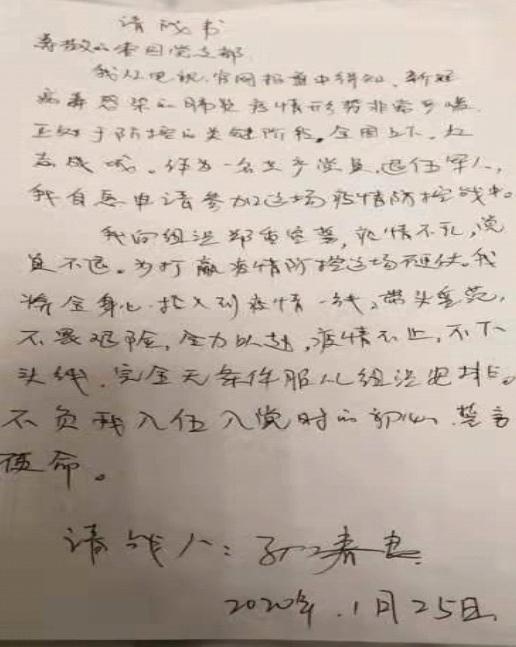 请战书
尊敬的李园党支部
我从电视、官网报道中得知,新冠
病毒感染的肺炎疫情形势非常严峻
正处于防控的关键阶段。全国上下,
志成城。作为一名共产党员、退伍军人,
我自愿申请参加这场疫情防控战中。
我向组织郑重宣誓,疫情不死,党
员不退。为打赢疫情防控这场硬仗。我
将全身心投入到疫情一线,带头垂范,
不畏艰险,全力以赴,疫情不止,不下
头线,完全无条件服从组织安排。
不负我入伍入党时的初心、誓言
使命。
请战人:孙春
2020年.1月25日